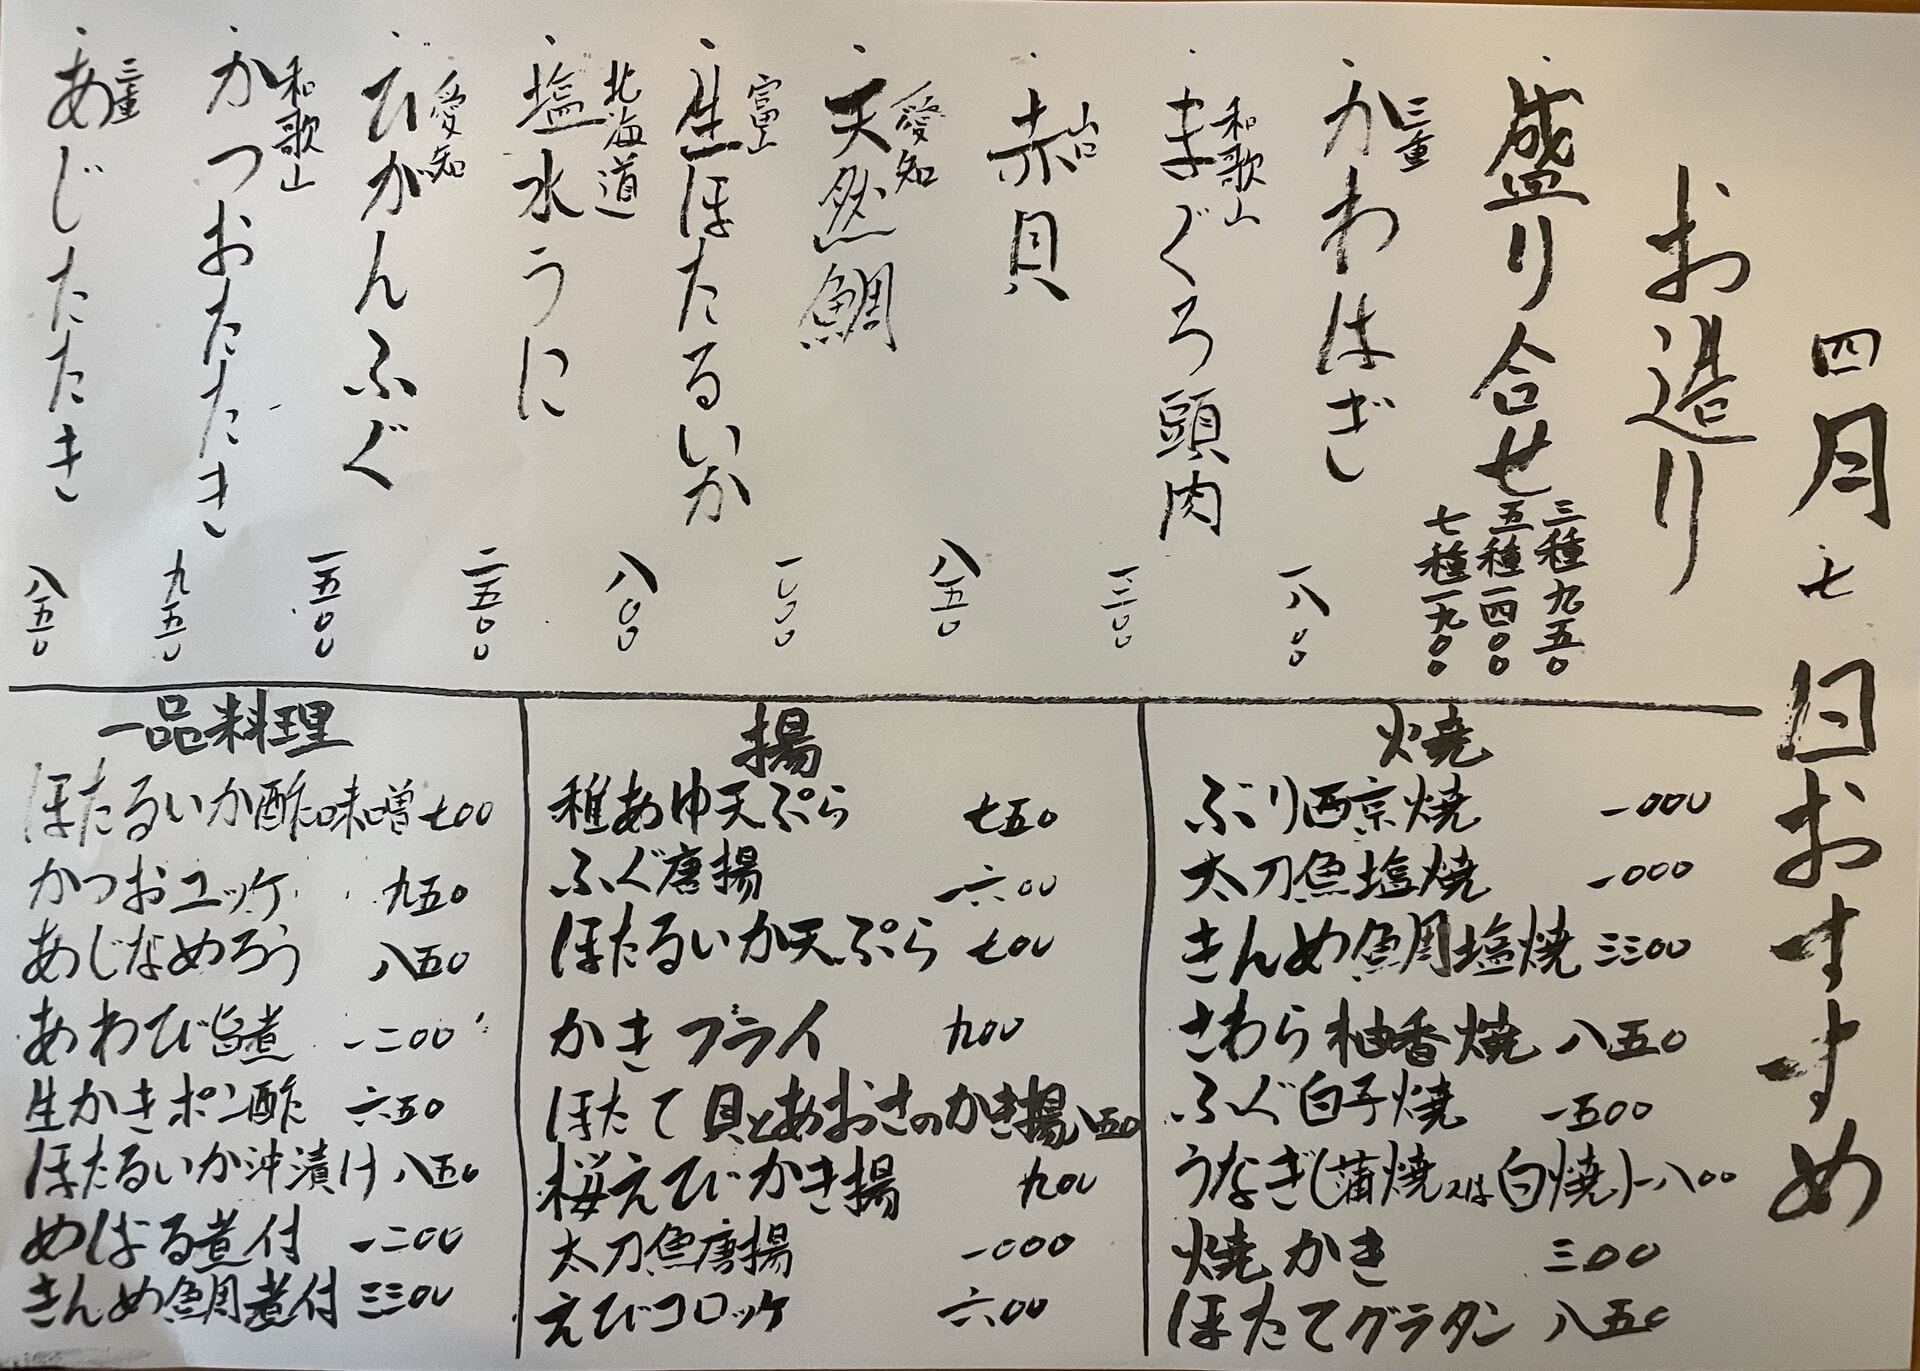 四月七日おすすめ
お造り
盛り合せ
三種 九五〇
五種 一四〇〇
七種 一九〇〇
三重
かわはぎ 一八〇〇
和歌山
まぐろ頭肉 一三〇〇
山口
赤貝 八五〇
愛知
天然鯛 一〇〇〇
富山
生ほたるいか 八〇〇
北海道
塩水うに 二五〇〇
愛知
ひがんふぐ 一五〇〇
和歌山
かつおたたき 九五〇
三重
あじたたき 八五〇
焼
ぶり西京焼 一〇〇〇
太刀魚塩焼 一〇〇〇
きんめ鯛塩焼 三三〇〇
さわら柚香焼 八五〇
ふぐ白子焼 一五〇〇
うなぎ(蒲焼又は白焼) 一八〇〇
焼かき 三〇〇
ほたてグラタン 八五〇
揚
稚あゆ天ぷら 七五〇
ふぐ唐揚 一六〇〇
ほたるいか天ぷら 七〇〇
かきフライ 九〇〇
ほたて貝とあおさのかき揚 八五〇
桜えびかき揚 九〇〇
太刀魚唐揚 一〇〇〇
えびコロッケ 六〇〇
一品料理
ほたるいか酢味噌 七〇〇
かつおユッケ 九五〇
あじなめろう 八五〇
あわび旨煮 一二〇〇
生かきポン酢 六五〇
ほたるいか沖漬け 八五〇
めばる煮付 一二〇〇
きんめ鯛煮付 三三〇〇